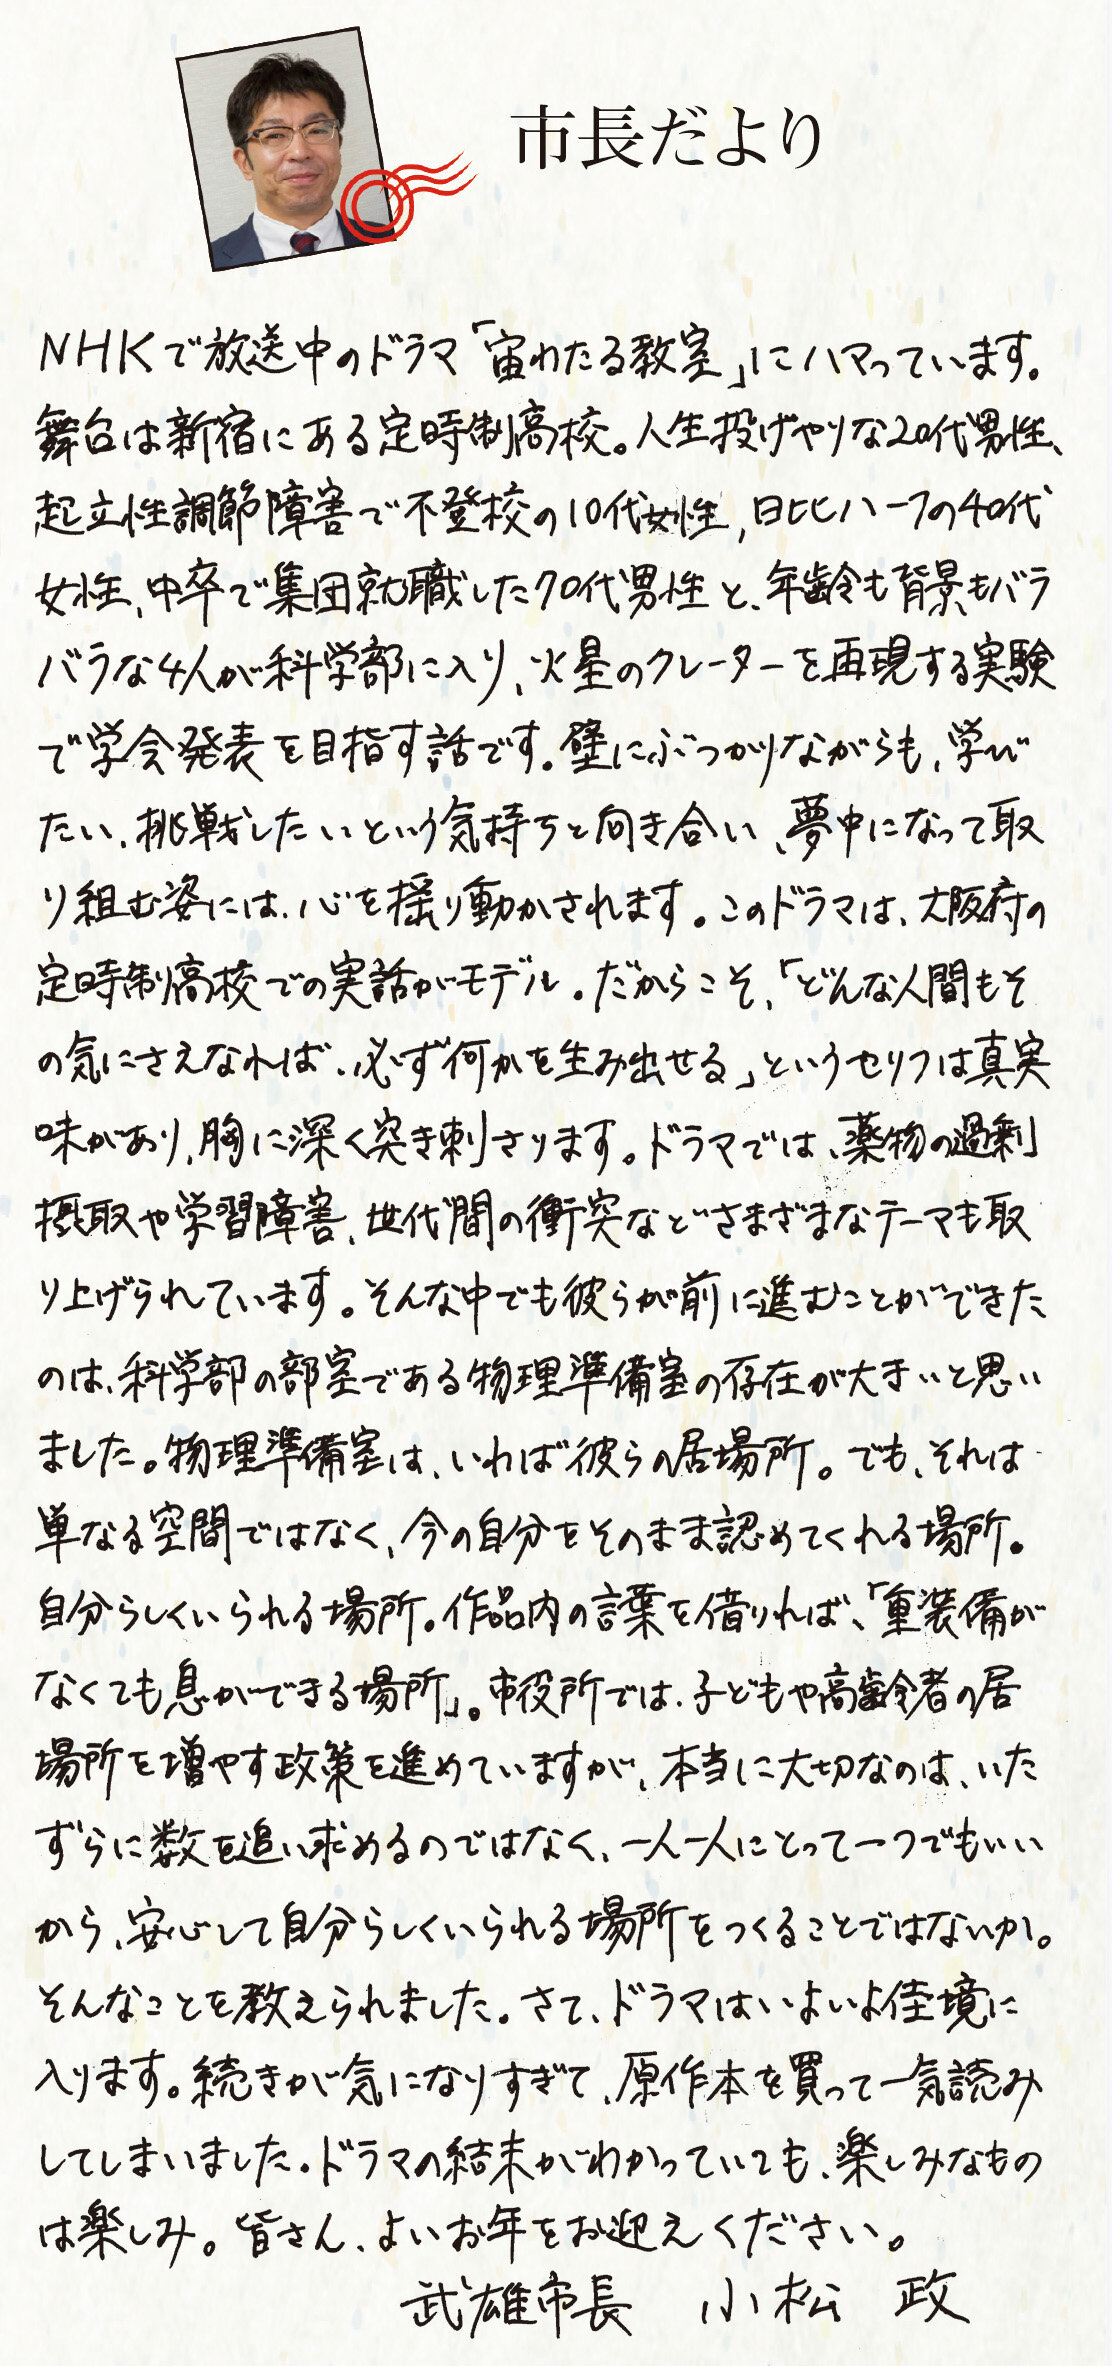 市長だより
NHKで放送中のドラマ「宙わたる教室」にハマっています。
舞台は新宿にある定時制高校。人生投げやりな20代男性、
起立性調節障害で不登校の10代女性、日比ハーフの40代
女性、中卒で集団就職した70代男性と、年齢も背景もバラ
バラな4人が科学部に入り、火星のクレーターを再現する実験
で学会発表を目指す話です。壁にぶつかりながらも、学び
たい、挑戦したいという気持ちと向き合い、夢中になって取
り組む姿には、心を揺り動かされます。このドラマは、大阪府の
定時制高校での実話がモデル。だからこそ、「どんな人間もそ
の気にさえなれば、必ず何かを生み出せる」というセリフは真実
味があり、胸に深く突き刺さります。ドラマでは、薬物の過剰
摂取や学習障害、世代間の衝突などさまざまなテーマも取
り上げられています。そんな中でも彼らが前に進むことができた
のは、科学部の部室である物理準備室の存在が大きいと思い
ました。物理準備室は、いわば彼らの居場所。でも、それは
単なる空間ではなく、今の自分をそのまま認めてくれる場所。
自分らしくいられる場所。作品内の言葉を借りれば、「重装備が
なくても息ができる場所」。市役所では、子どもや高齢者の居
場所を増やす政策を進めていますが、本当に大切なのは、いた
ずらに数を追い求めるのではなく、一人一人にとって一つでもいい
から、安心して自分らしくいられる場所をつくることではないか。
そんなことを教えられました。さて、ドラマはいよいよ佳境に
入ります。続きが気になりすぎて、原作本を買って一気読み
してしまいました。ドラマの結末がわかっていても、楽しみなもの
は楽しみ。皆さん、よいお年をお迎えください。
武雄市長　小松　政